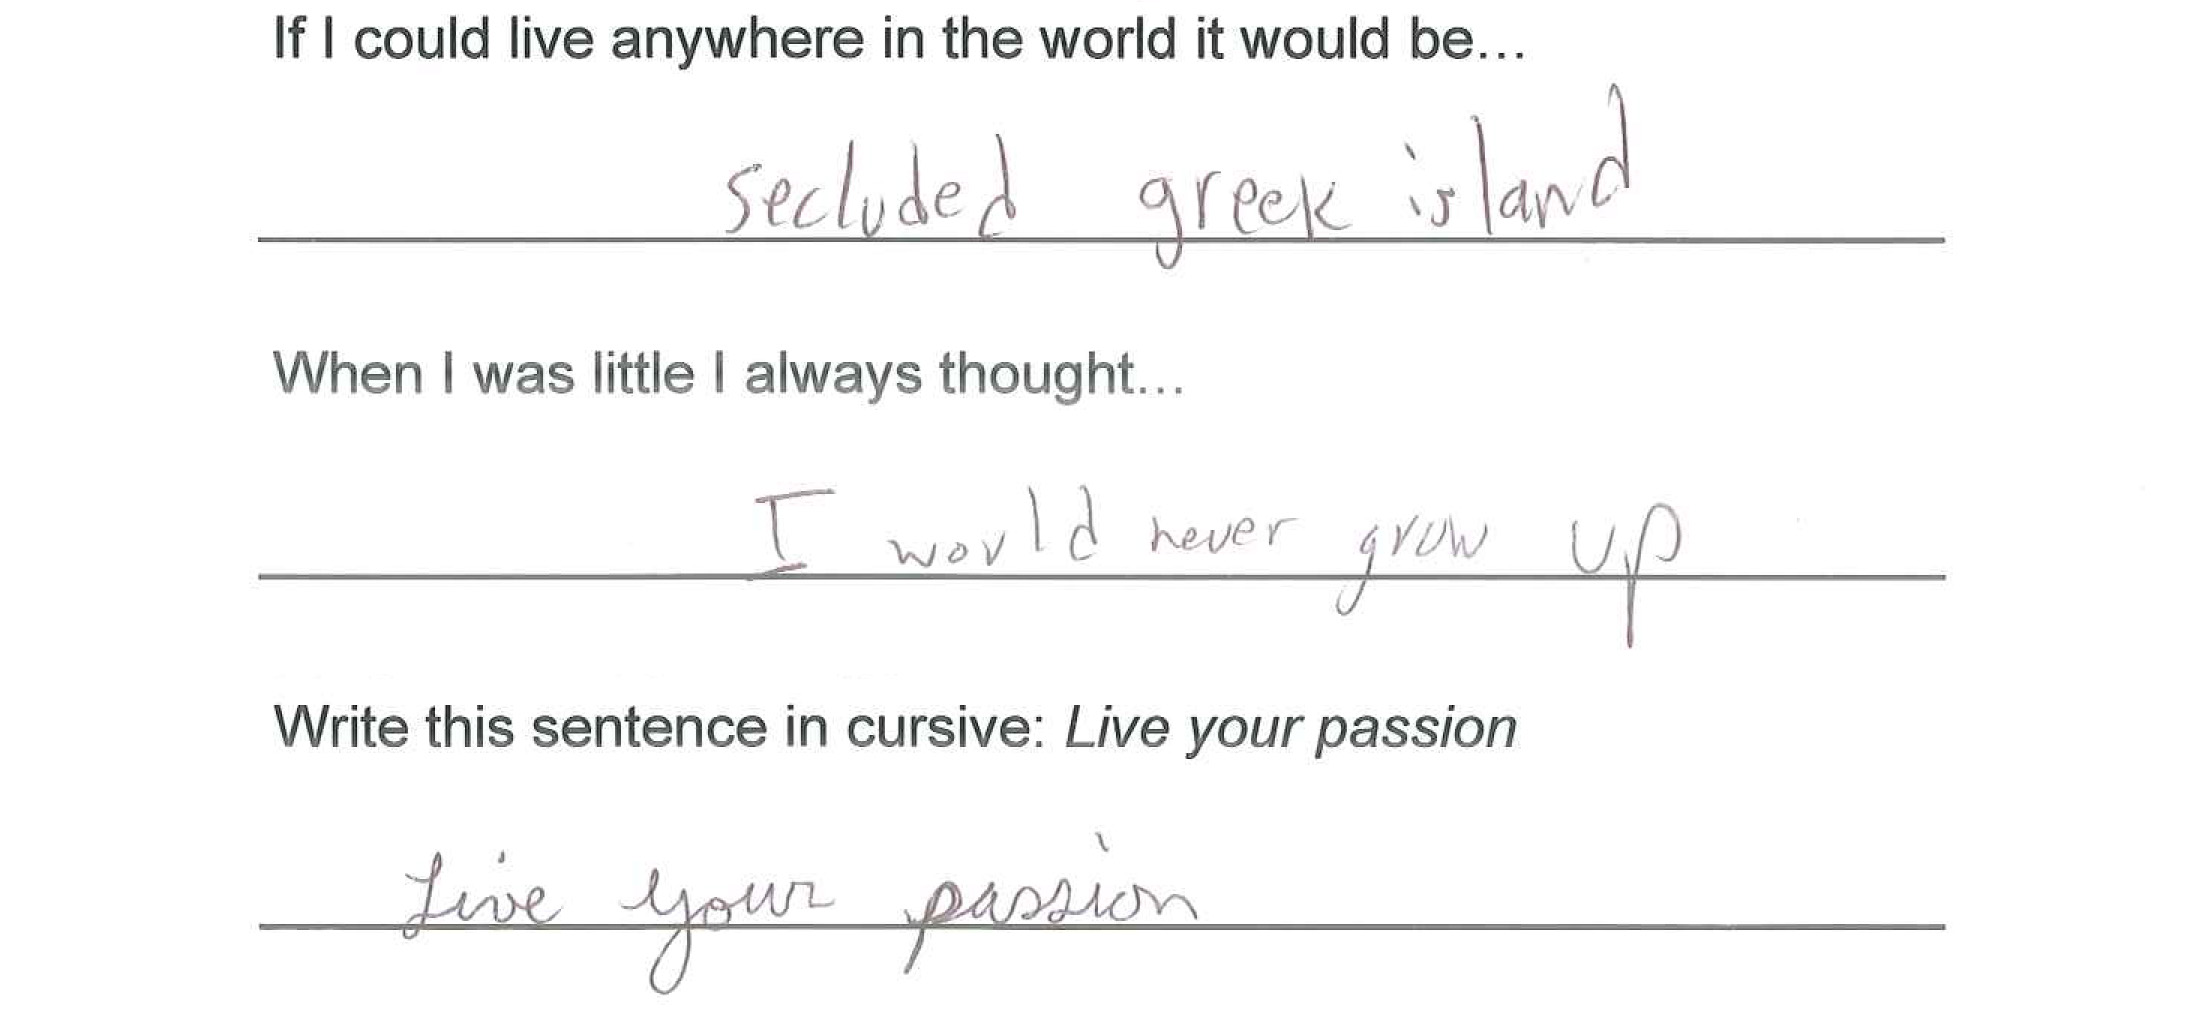 If I could live anywhere in the world it would be...
secluded greek island
When I was little I always thought...
I would never grow up
Write this sentence in cursive: Live your passion
Live your passion